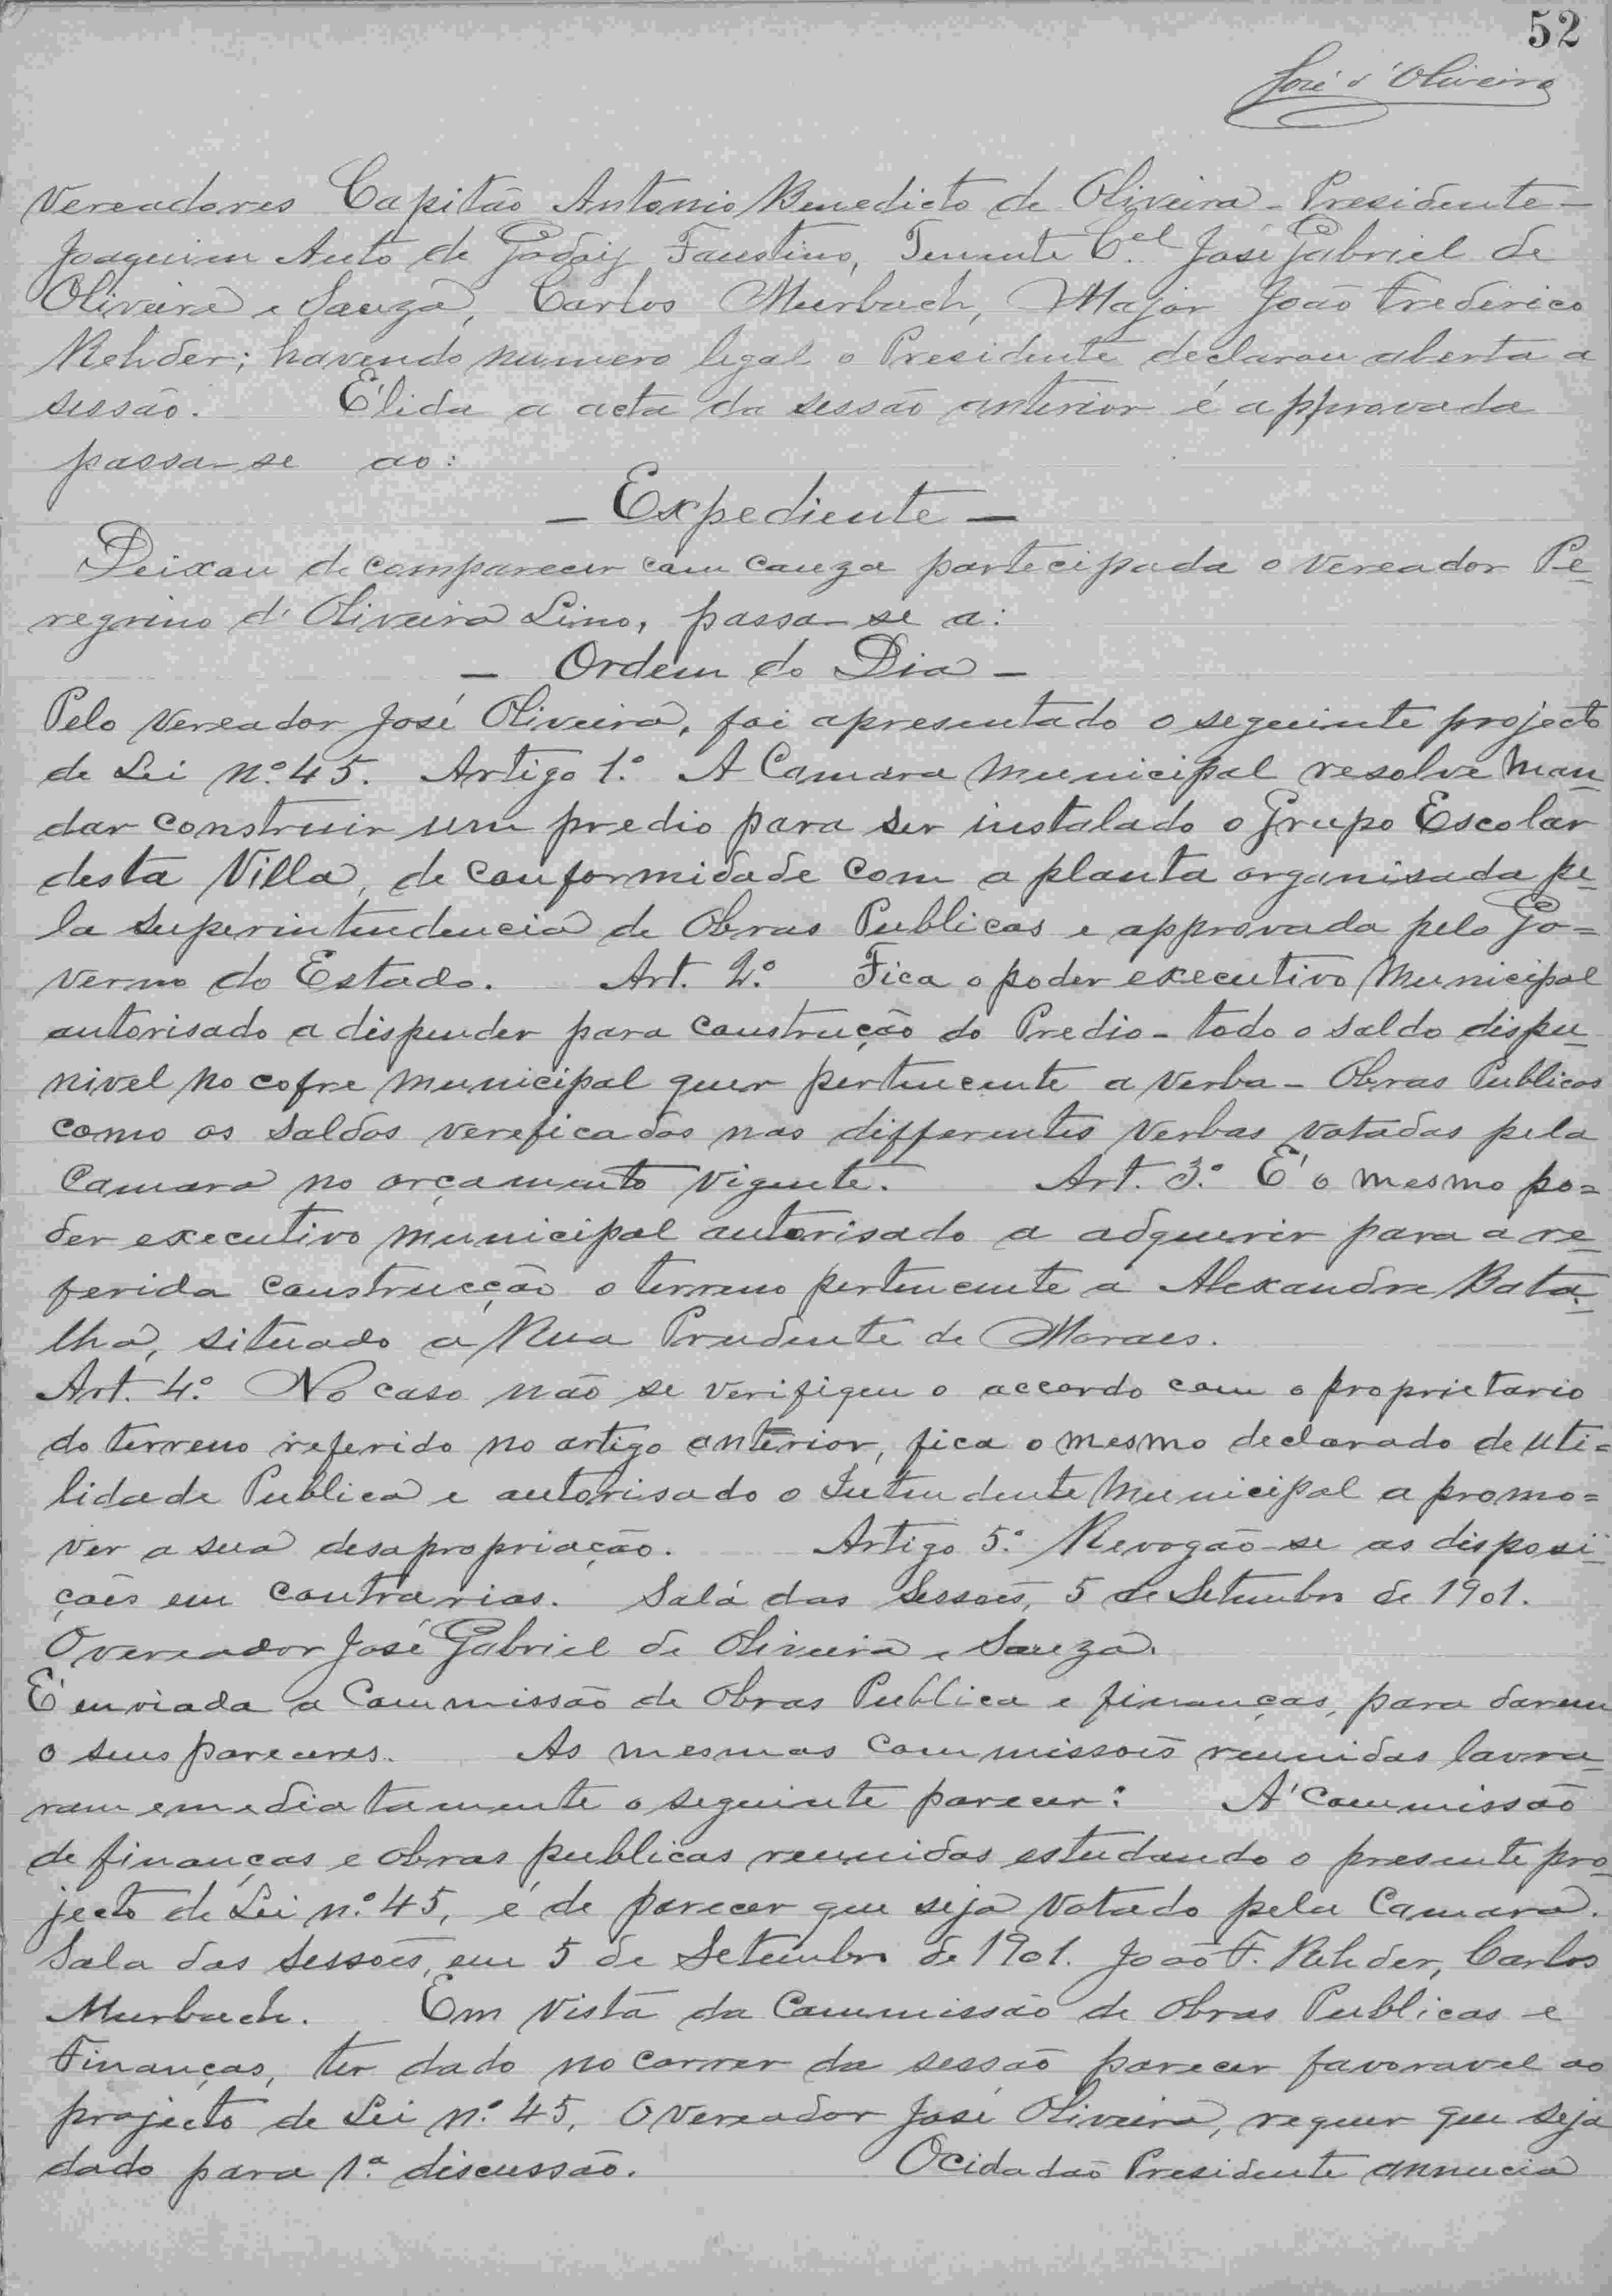 52
José d'Oliveira
Vereadores Capitão Antonio Benedicto de Oliveira - Presidente -
Joaquim Auto de Godoy Faustino, Tenente C.el José Gabriel de
Oliveira e Souza, Carlos Murbach, Major João Frederico
Rehder; havendo numero legal o Presidente declarou aberta a
sessão. É lida a acta da sessão anterior é approvada
passa-se ao:
- Expediente -
Deixou de comparecer com cauza partecipada o vereador Pe-
regrino d'Oliveira Lino, passa-se a:
- Ordem do Dia -
Pelo Vereador José Oliveira, foi apresentado o seguinte projecto
de Lei n.º 45. Artigo 1.º A Camara Municipal resolve man-
dar construir um predio para ser instalado o Grupo Escolar
desta Villa, de conformidade com a planta organisada pe-
la superintendencia de Obras Publicas e approvada pelo Go=
verno do Estado. Art. 2.º Fica o poder executivo Municipal
autorisado a dispender para construção do Predio - todo o saldo dispu-
nivel no cofre municipal quer pertencente a verba - Obras Publicas
como os saldos vereficados nas differentes verbas votadas pela
Camara no orçamento vigente. Art. 3.º É o mesmo po=
der executivo municipal autorisado a adquerir para a re-
ferida construcção o terreno pertencente a Alexandre Bata-
lha, situado a Rua Prudente de Moraes.
Art. 4.º No caso não se verifiqeu o accordo com o proprietario
do terreno referido no artigo anterior, fica o mesmo declarado de uti=
lidade Publica e autorisado o Intendente Municipal a promo=
ver a sua desapropriação. Artigo 5.º Revogão-se as disposi-
ções em contrarias. Sala das Sessões, 5 de Setembro de 1901.
O vereador José Gabriel de Oliveira e Souza.
É enviada a Commissão de Obras Publica e finanças, para darem
o seus pareceres. As mesmas commissões reunidas lavra-
ram emediatamente o seguinte parecer: A Commissão
de finanças e obras publicas reunidas estudando o presente pro-
jecto de Lei n.º 45, é de parecer que seja votado pela Camara.
Sala das sessões, em 5 de Setembro de 1901. João F. Rehder, Carlos
Murbach. Em vista da Commissão de Obras Publicas e
Finanças, ter dado no correr da sessão parecer favoravel ao
projecto de Lei n.º 45, O Vereador José Oliveira, requer que seja
dado para 1.ª discussão. O cidadão Presidente annucia